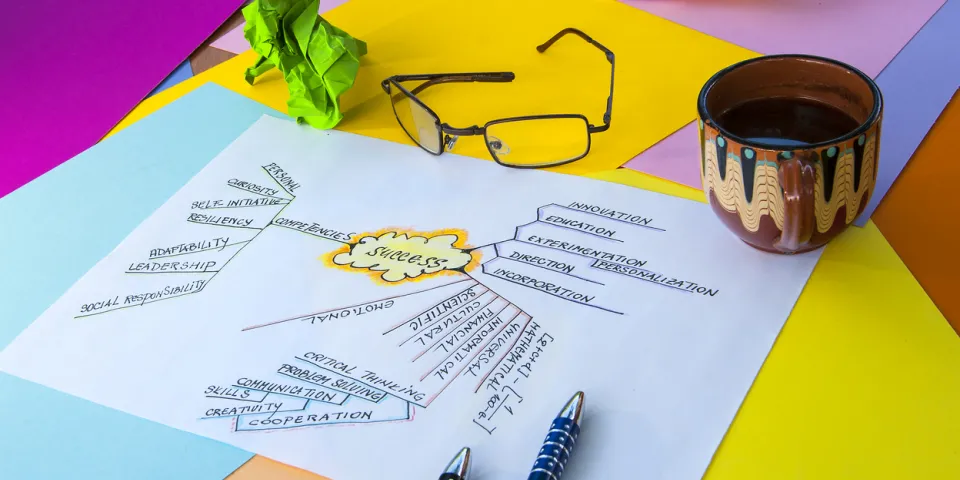 PERSONAL
CURIOSITY
SELF-INITIATIVE
RESILIENCY
COMPETENCIES
ADAPTABILITY
LEADERSHIP
SOCIAL RESPONSIBILITY
SUCCESS
INNOVATION
EDUCATION
EXPERIMENTATION
PERSONALIZATION
DIRECTION
INCORPORATION
EMOTIONAL
SCIENTIFIC
CULTURAL
FINANCIAL
INFORMATICAL
UNIVERSAL
MATHEMATICAL
CRITICAL THINKING
PROBLEM SOLVING
COMMUNICATION
SKILLS
CREATIVITY
COOPERATION